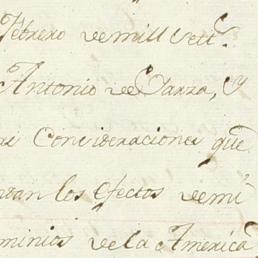 Febrero de mill Sett.º
Antonio de Garza, y
consideraciones que
los efectos de mi
minios de la America